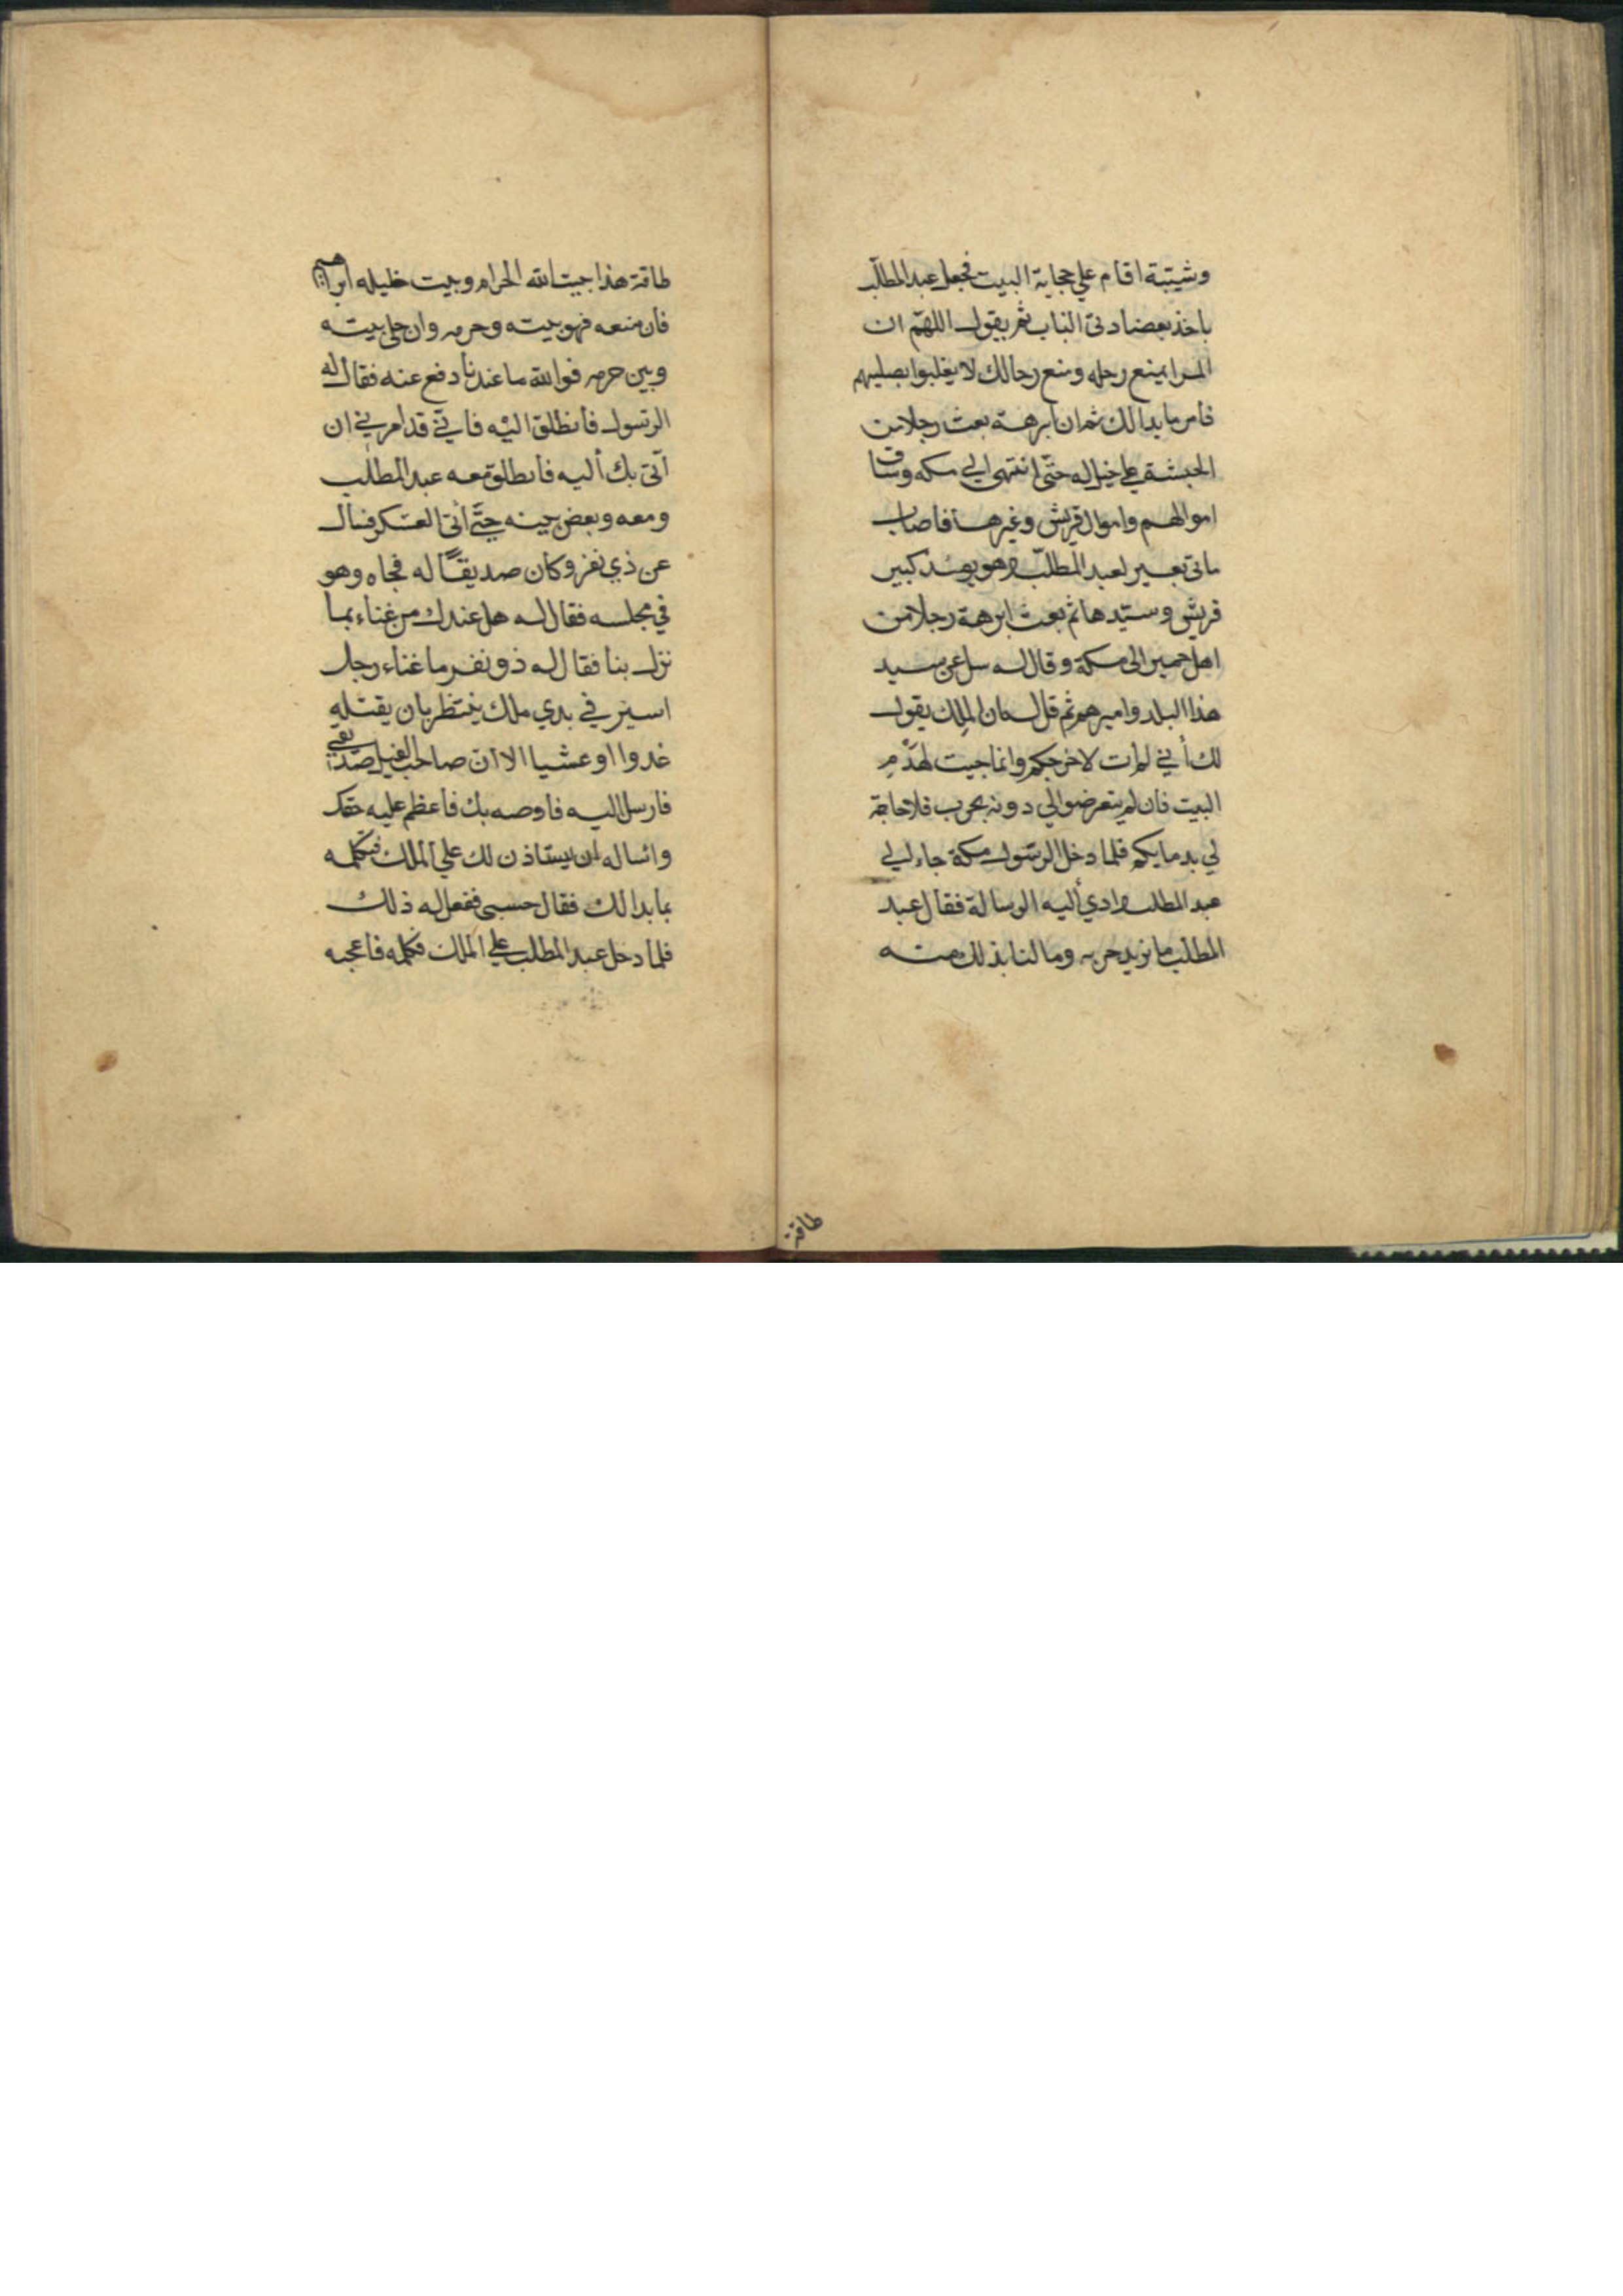 وشيبة اقام علي حجابة البيت فجعل عبد المطلّب
ياخذ بعضادتي الباب ثم يقول اللهمّ ان
المرا يمنع رحله ومنع رحالك لا يغلبوا بصليبهم
فامر ما بدالك ثم ان ابرهة بعث رجلا من
الحبشة علي خيل له حتّى انتهى الي مكه وساق
اموالهم واموال قريش وغيرها فاصاب
ماتي بعير لعبد المطلّب وهو يومئذ كبير
قريش وسيّدها ثم بعث ابرهة رجلا من
اهل حمير الى مكة وقال له سل عن سيد
هذا البلد واميرهم ثم قل له ان الملك يقول
لك أني لم ات لاخرجكم وانما جيت لهَدْمِ
البيت فان لم يتعرضوا لي دونه بحرب فلا حاجة
لي بدمايكم فلما دخل الرسّول مكة جاء الي
عبد المطلب وادي أليه الرسالة فقال عبد
المطلب ما نريد حربه وما لنا بذلك منه
طاقة
طاقة هذا بيت الله الحرام وبيت خليله ابراهيم
فان منعه فهو بيته وحرمه وان خلي بيته
وبين حرمه فوالله ما عندنا دفع عنه فقال له
الرسّول فانطلق اليْه فاني قد امرني ان
آتي بك أليه فانطلق معه عبد المطلب
ومعه وبعض بينه حتّي أتي العسكر فسال
عن ذي نفر وكان صديقًا له فجاه وهو
في مجلسه فقال له هل عندك من غناء بما
نزل بنا فقال له ذو نفر ما غناء رجل
اسير في يدي ملك ينتظر بان يقتله
غدوا او عشيا الا ان صاحب الفيل صديقي
فارسل اليه فاوصه بك فاعظم عليه حقك
واساله ان يستاذن لك علي الملك فتكلمه
بما بدالك فقال حسبي ففعل له ذلك
فلما دخل عبد المطلب علي الملك فكلمه فاعجبه